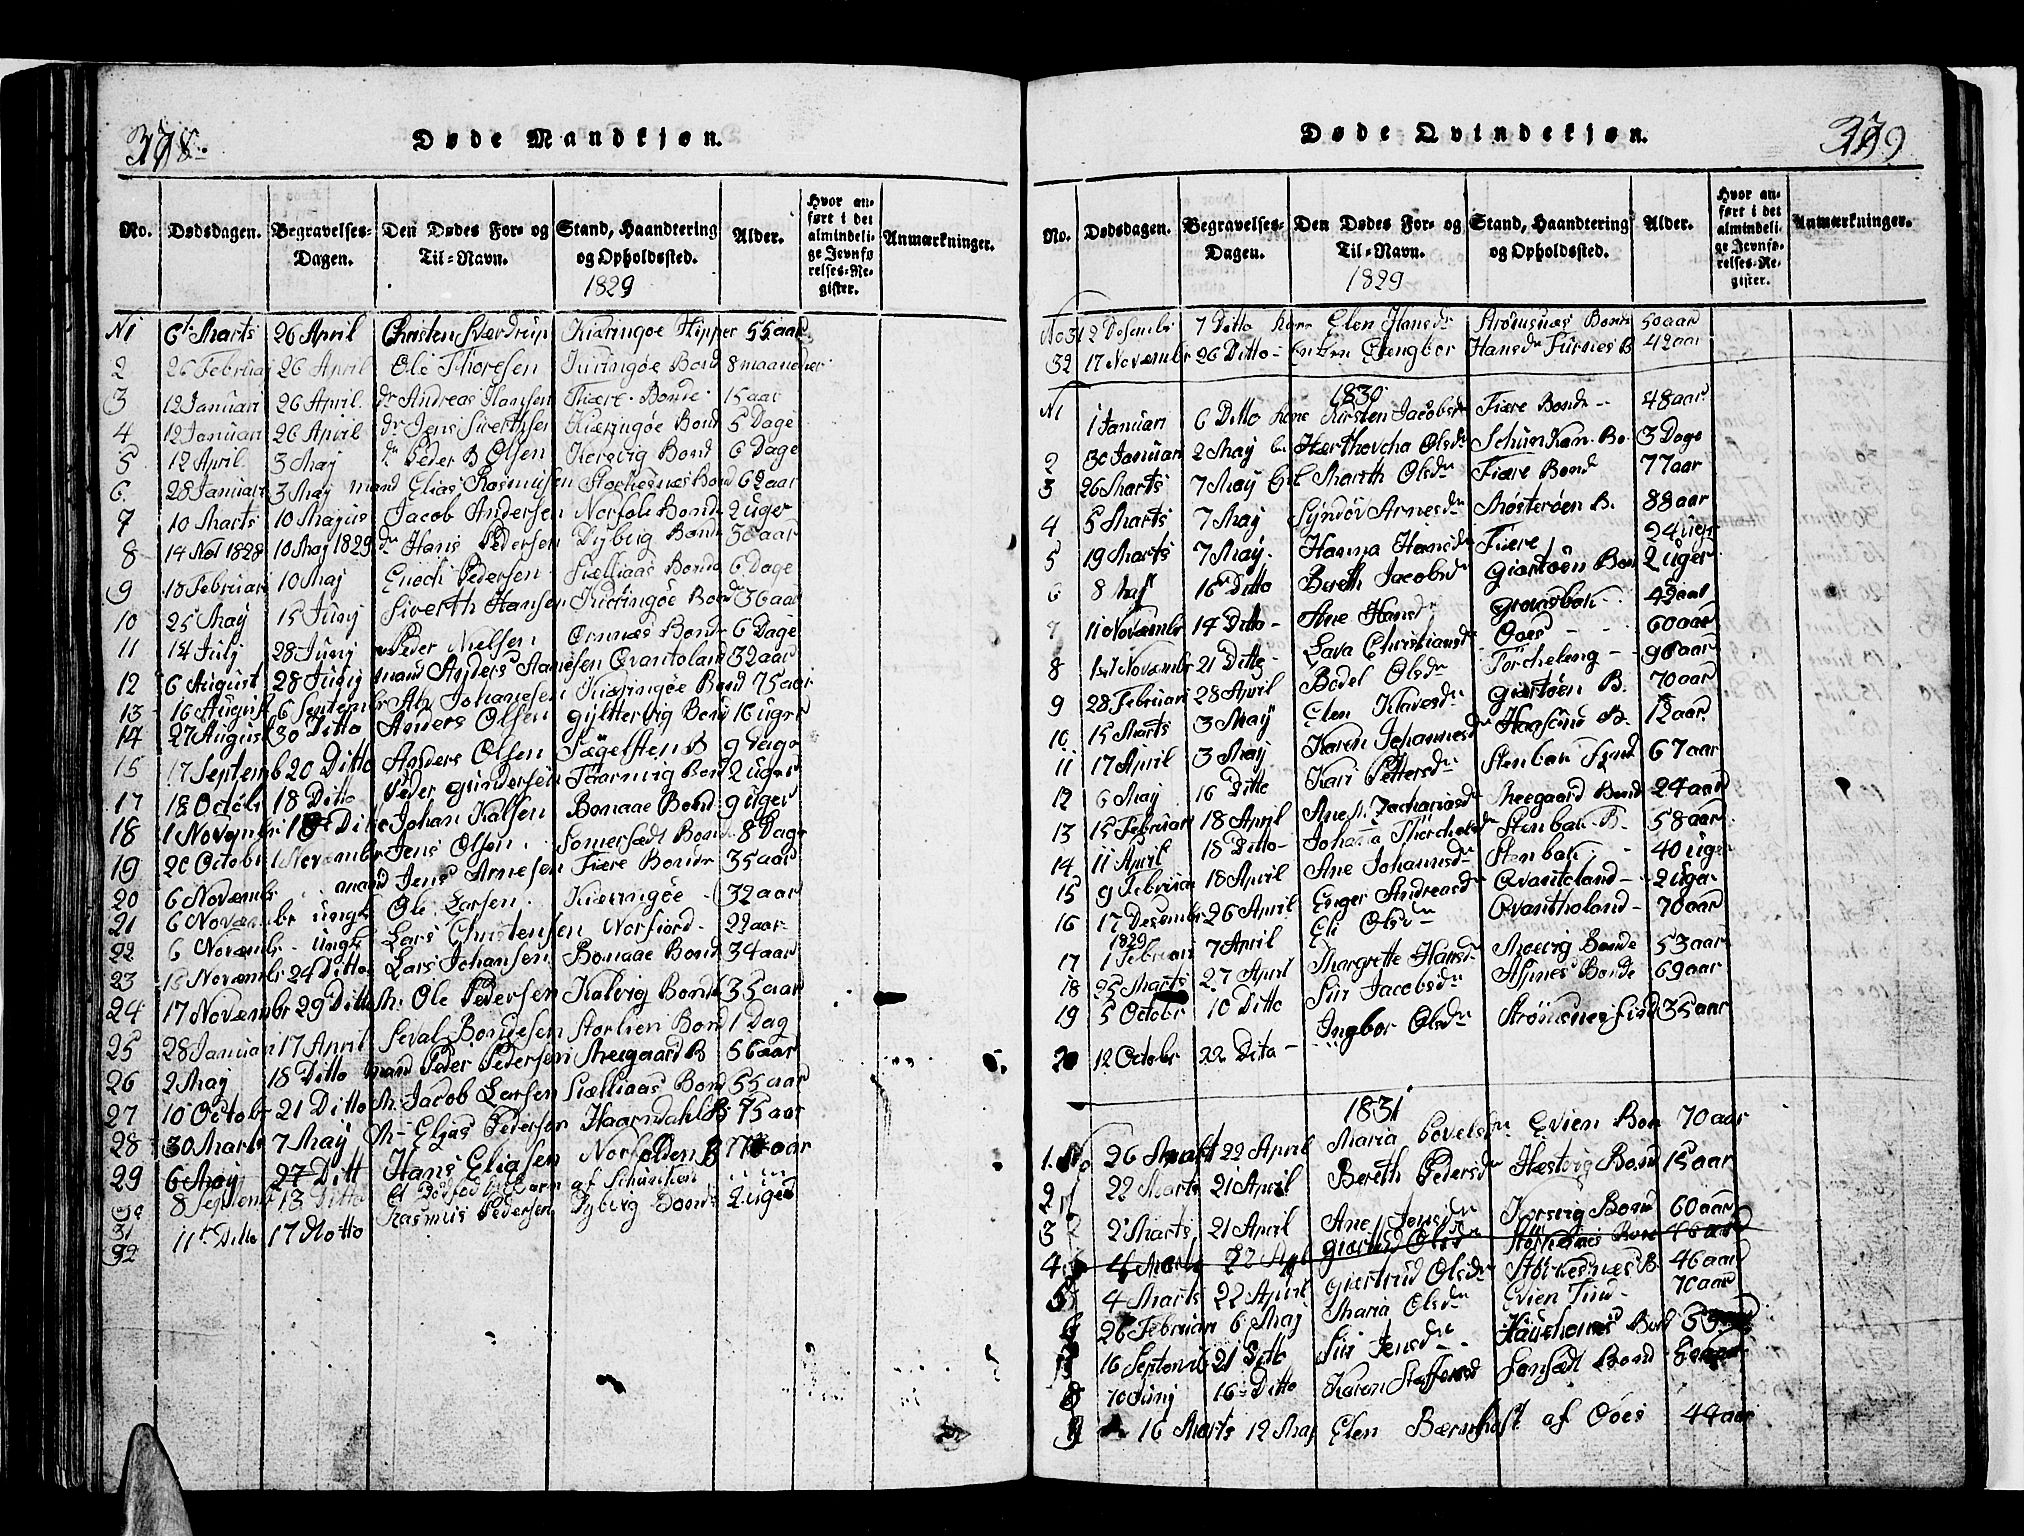 378.
Døde Mandkjøn.
No. Dødsdagen. Begravelses-Dagen. Den Dødes For- og Til-Navn. Stand, Haandtering og Opholdssted. Alder. Hvor anført i det almindelige Jevnførelses-Register. Anmærkninger.
1829
N1 6t Marts 26 April Christen Sverdrup Kieringøe Hipper 55 aar
2 26 Februar 26 April Ole Thoresen Kieringøe Bond 8 maaneder
3 12 Januari 26 April dr Andreas Hansen Fiære Bonde 15 aar
4 12 Januari 26 April dr Jens Siverthsen Kieringøe Bond 5 Dage
5 12 April 3 Maj dr Peder B Olsen Kersvig Bond 6 Dage
6 28 Januari 3 Maj mand Elias Rasmusen Storchesnæs Bond 62 aar
7 10 Marts 10 Majus Jacob Andersen Norfole Bond 2 uger
8 14 Nol 1828 10 Maj 1829 dr Hans Pedersen Dyberg Bond 30 aar
9 18 Februari 10 Maj Enoch Pedersen Siælliaas Bond 6 Dage
10 25 Maj 15 Junij Siverth Hansen Kieringøe Bond 36 aar
11 14 Julj 28 Junij Peder Nielsen Ørnnæs Bond 6 Dage
12 6 August 28 Junij mand Anders Hansen Qvantoland 32 aar
13 16 August 6 Septembr Johanesen Kieringøe Bond 75 aar
14 27 August 30 Ditto Anders Olsen Gyltervig Bond 16 uger
15 17 Septemb 20 Ditto Anders Olsen Fægelsten B 9 Dage
17 18 Octob 18 Ditto Peder Gundersen Taarnvig Bond 2 uger
18 1 Novembr 1 Ditto Johan Kalsen Bonaae Bond 9 uger
19 20 Octobr 1 Novembr Jens Olsen Somersædt Bond 8 Dage
20 6 Novembr mand Jens Arnesen Fiære Bond 35 aar
21 6 Novæmbr ungk Ole Larsen Kieringøe 32 aar
22 6 Novæmbr ungk Lars Christensen Norfiord 22 aar
23 16 Novæmbr 24 Ditto Lars Johansen Bonaae Bond 34 aar
24 17 Novæmbr 29 Ditto M: Ole Pedersen Kalvig Bond 35 aar
25 28 Januari 17 April Seval Bondesen Storlien Bond 1 Dag
26 2 Maj 18 Ditto mand Peder Pedersen Meegaard B 56 aar
27 10 Octobr 21 Ditto M: Jacob Larsen Siælliaas Bond 55 aar
28 30 Marts 7 Maj M- Elias Pedersen Haarndahl B 75 aar
29 6 Maj 27 Ditt Hans Eliasen Norfolden B 17 aar
30 8 Septemb 13 Ditto Et Dødfød af
31 11t Ditto 17 Notto Rasmus Pedersen Dyberg Bond 2 uger
32
379
Døde Qvindekjøn.
No. Dødsdagen. Begravelses-Dagen. Den Dødes For- og Til-Navn. Stand, Haandtering og Opholdssted. Alder. Hvor anført i det almindelige Jevnførelses-Register. Anmærkninger.
1829
No31 2 Desembr 7 Ditto Elen Hansdr Strømsnæs Bond 50 aar
32 17 Novæmbr 26 Ditto Engbor Hansdr Fürnæs B 42 aar
1830
N1 1 Januari 6 Ditto kone Kirsten Jacobsdr Fiære Bond 48 aar
2 30 Januari 2 Maj Olsdr 3 Dage
3 26 Marts 7 Maj Marith Olsdr Fiære Bond 77 aar
4 5 Marts 7 Maj Syndøv Arnesdr Møsterøen B. 88 aar
5 19 Marts 7 Maj Hanna Hansdr Fiære 24 uger
6 8 Maj 16 Ditto Bereth Jacobsdr Giærtøen Bon 2 uger
7 11 Novæmbr 14 Ditto Ane Hansdr Grønsbak 42 aar
8 Novæmbr 21 Ditto Lava Christiansdr Ooes 60 aar
9 28 Februari 28 April Bodel Olsdr Torcheleng 96 aar
10 15 Marts 3 Maj Elen Klavesdr Giærtøen B. 70 aar
11 17 April 3 Maj Karen Johannesdr Haasund B. 12 aar
12 6 Maj 16 Ditto Kari Pettersdr Stenbak 67 aar
13 15 Februari 18 April Ane Zachariasdr Meegaard Bond 24 aar
14 11 April 18 Ditto Johanna Thorchelsdr Stenbak B. 58 aar
15 9 Februari 18 April Ane Johannsdr Stenbak 40 uger
16 17 Desembr 1829 26 April Enger Andreasdr Qvantoland 2 uger
17 1 Februari 7 April Eli Olsdr Qvantholand 70 aar
18 25 Marts 27 April Margrette Hansdr Moevig Bonde 53 aar
19 5 Octobr 10 Ditto Siri Jacobsdr Asnnes Bonde 69 aar
20 12 Octobr 22 Dita Ingbor Olsdr Strømsnes 35 aar
1831
1. No 26 Martt 22 April Maria Povelsdr Evien Bon 70 aar
2 22 Marts 21 April Bereth Pedersdr Hæstvig Bond 15 aar
3 2 Marts 21 April Ane Jensdr Korsvig Bond 60 aar
4 4 Marts 22 Apl Giertrud Olsdr Bon 46 aar
5 4 Marts 22 April Giertrud Olsdr Storkesnæs B. 46 aar
6 26 Februari 6 Maj Maria Olsdr Evien 70 aar
16 Septemb 21 Ditto Siri Jensdr Bond
8 10 Junij 16 Ditto Karen Staffensd Sonsædt Bond
9 16 Marts 12 Maj Elen Bærnholt af Ooes 44 aar